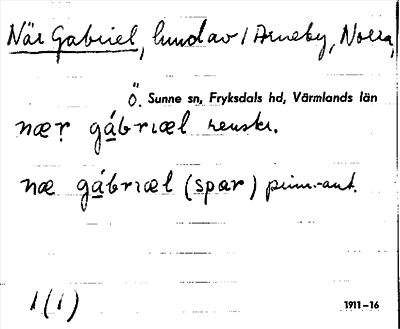 När Gabriel, hmd av 1 Arneby, Norra,
Ö. Sunne sn, Fryksdals hd, Värmlands län
næṛ gábrɩæl renskr.
næ gábrɩæl (spar) prim.-ant.
1(1)
1911–16